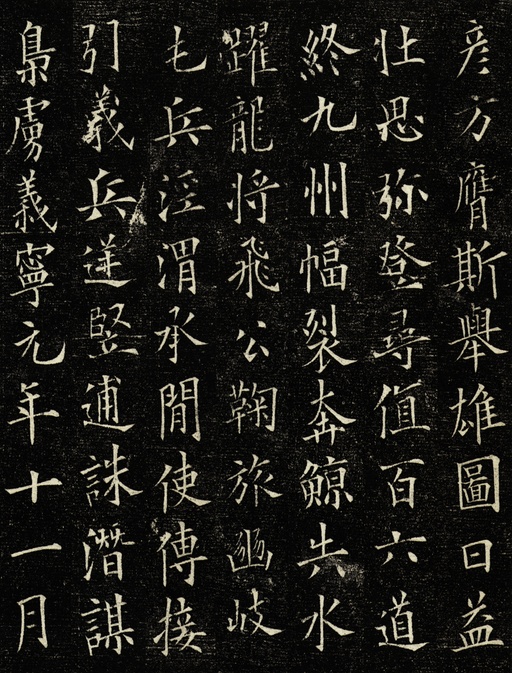 彦方膺斯舉雄圖日益
壯思弥登尋值百六道
終九州幅裂奔鯨失水
躍龍将飛公鞠旅豳岐
屯兵涇渭承閒使傳接
引義兵逆竪逋誅潛謀
梟虜義寧元年十一月